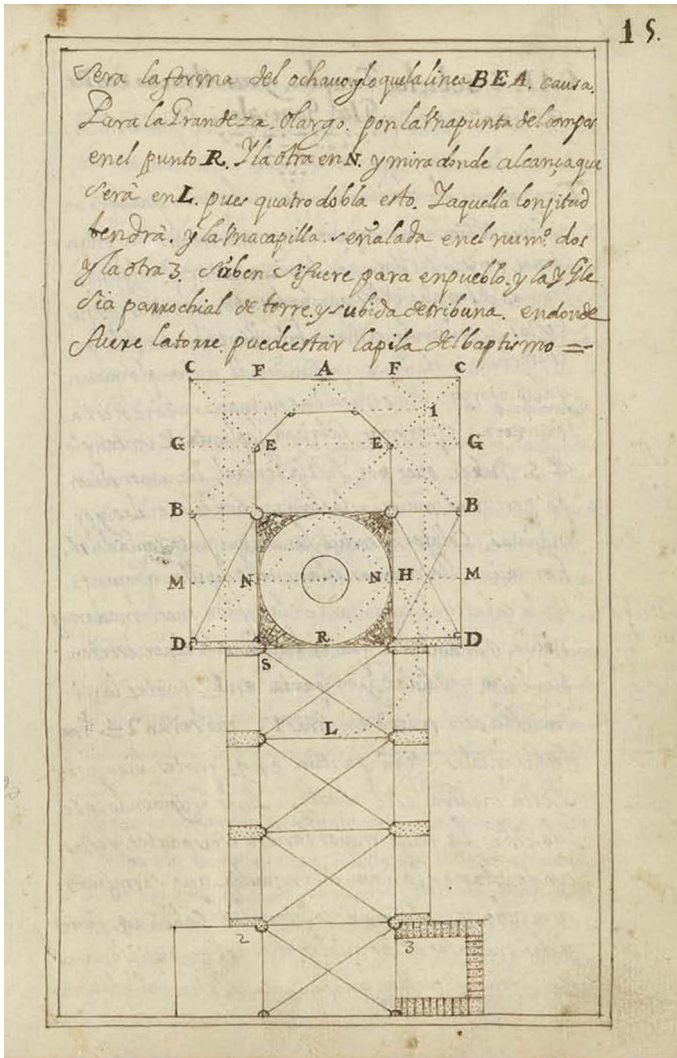 15.
sera la forma del ochavo y lo que la linea BEA. causa.
Para la Grandeza. olargo. pon la Una punta del compas
en el punto R. Y la otra en N. y mira donde alcança que
serà en L. pues quatro dobla esto. Y aquella lonjitud
tendrà. y la Una capilla. señalada en el num.º dos
y la otra 3. sirben si fuere para en pueblo. y la Ygle
sia parrochial de torre. y subida de tribuna. en donde
fuere la torre puede estàr la pila del baptismo
C F A F C
1
G E E G
B B
M N N H M
D R D
S
L
2 3